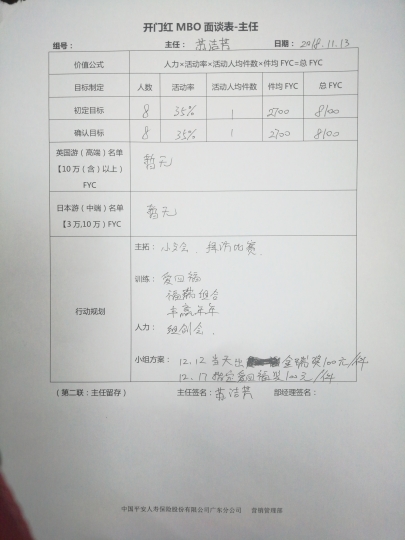 开门红 MBO 面谈表-主任
组号： 主任：苏洁芳 日期：2018.11.13
价值公式 人力×活动率×活动人均件数×件均 FYC=总 FYC
目标制定 人数 活动率 活动人均件数 件均 FYC 总 FYC
初定目标 8 35% 1 2700 8100
确认目标 8 35% 1 2700 8100
英国游（高端）名单
【10 万（含）以上）
FYC
暂无
日本游（中端）名单
【3 万,10 万）FYC
暂无
行动规划
主拓：小交会、 比赛
训练：爱回福
福瑞组合
丰赢年年
人力：组创会、
小组方案：12.12 当天出 金瑞奖100元/件
12.17 指定爱回福奖100元/件
（第二联：主任留存） 主任签名：苏洁芳 部经理签名：
中国平安人寿保险股份有限公司广东分公司 营销管理部